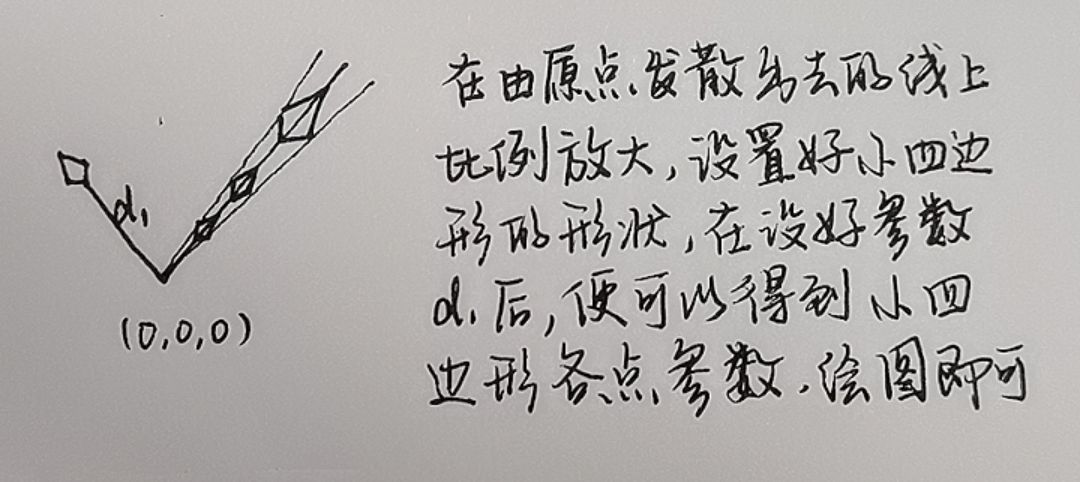 在由原点发散出去的线上
比例放大,设置好小四边
形的形状,在设好参数
d₁后,便可以得到小四
边形各点参数.绘图即可
d₁
(0,0,0)